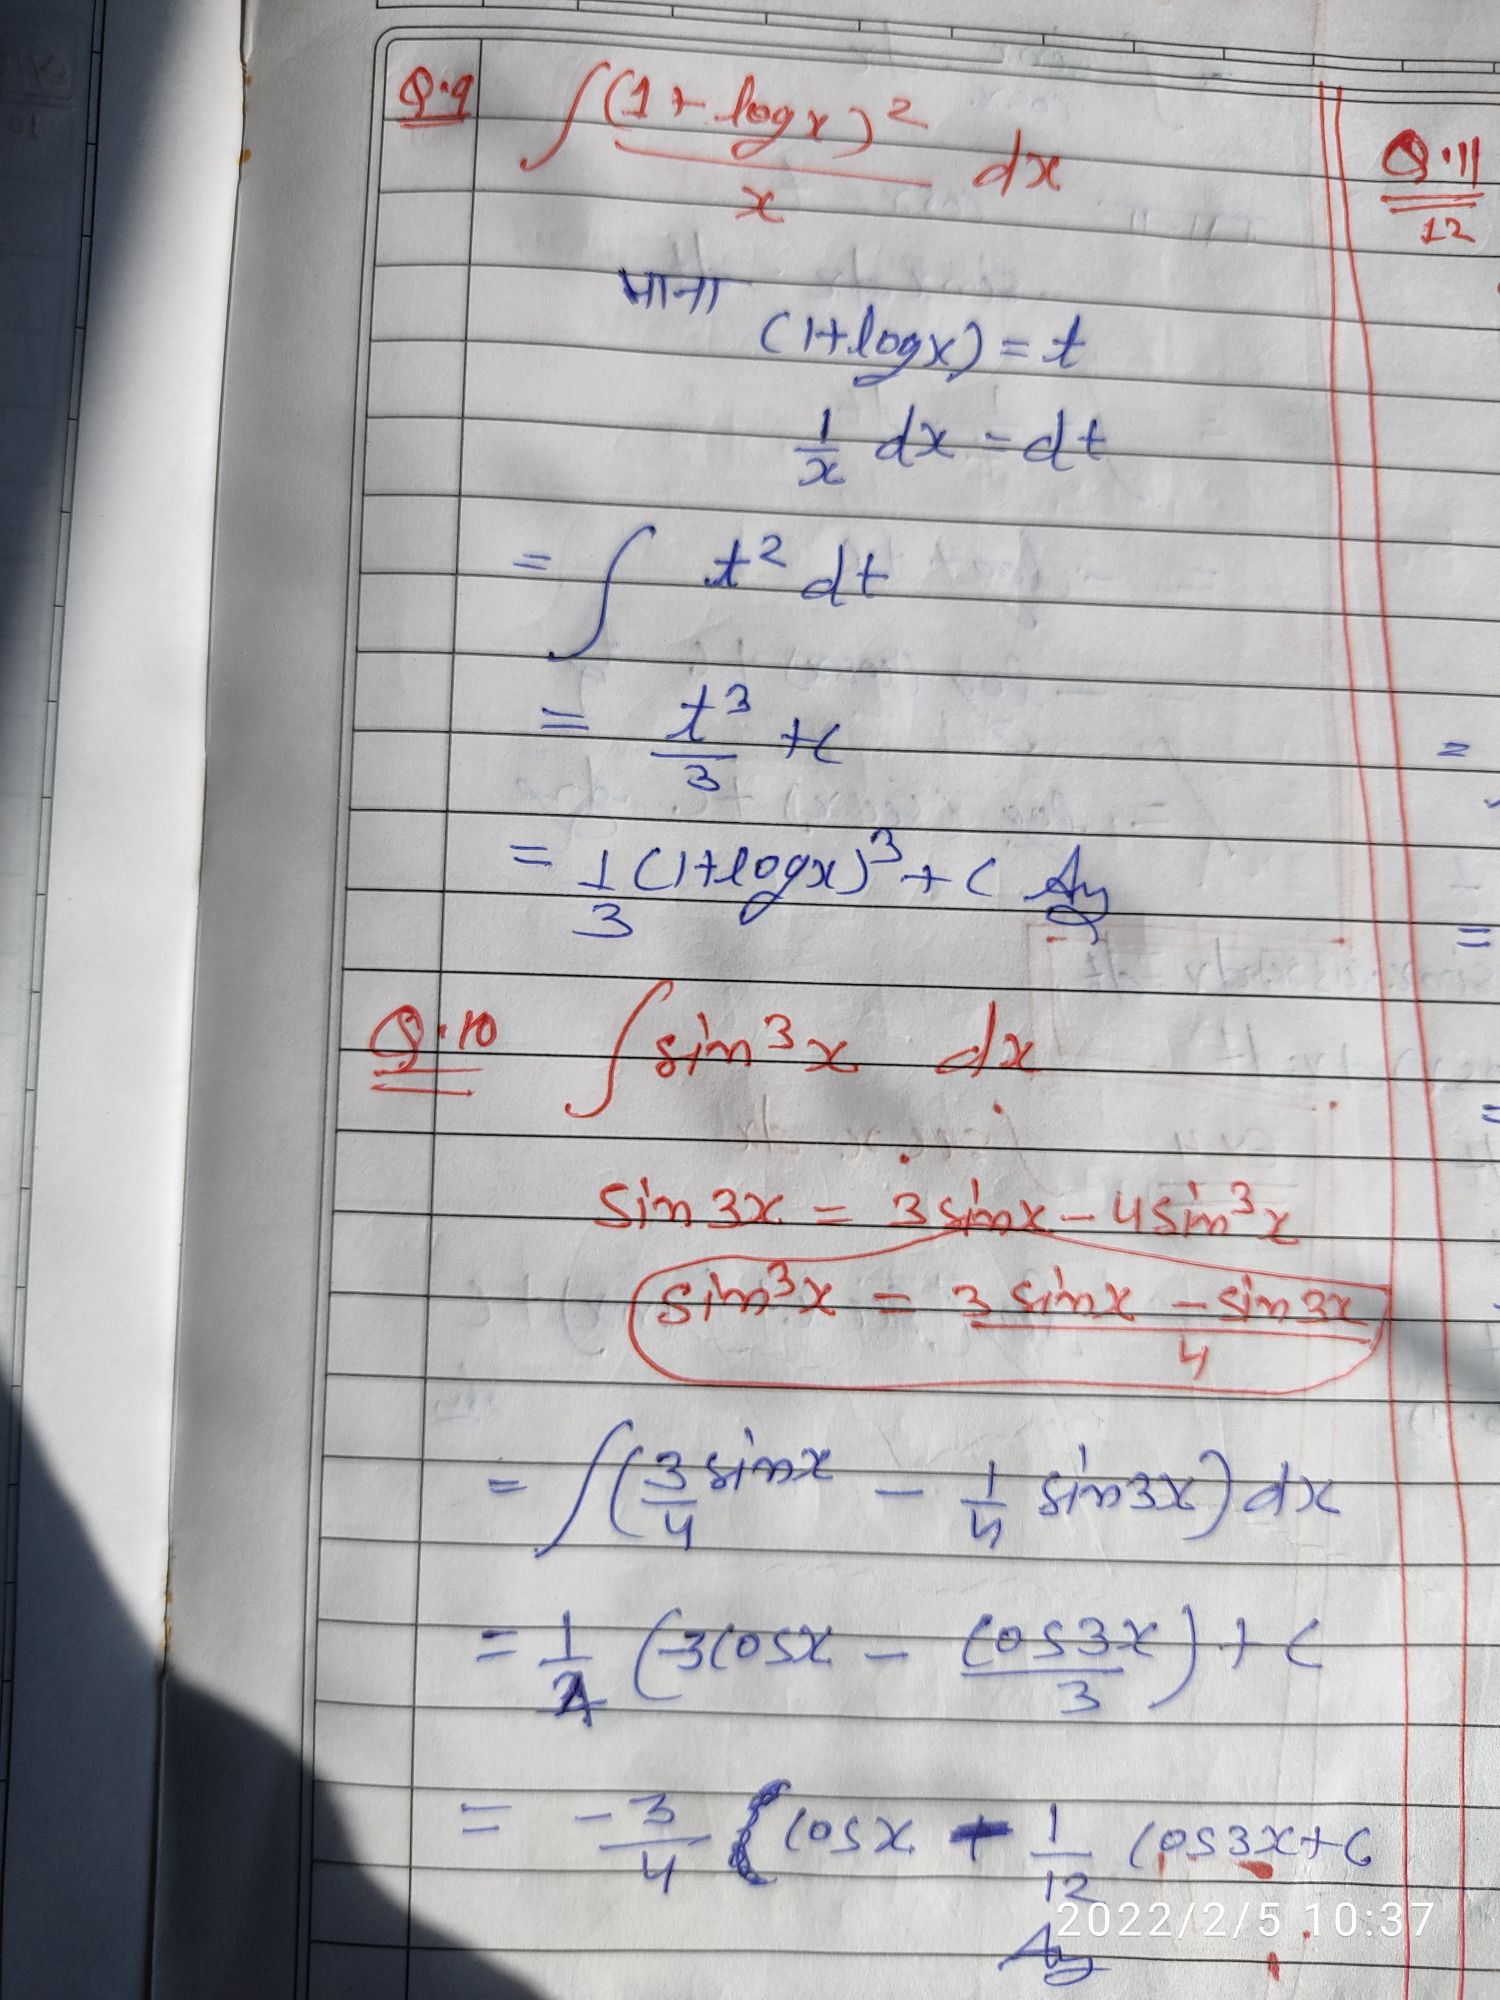 Q.9 ∫ (1 + log x)² / x dx
माना
(1+log x) = t
1/x dx = dt
= ∫ t² dt
= t³/3 + C
= 1/3 (1+log x)³ + C Ans
Q.10 ∫ sin³x dx
sin 3x = 3 sin x - 4 sin³x
sin³x = (3 sin x - sin 3x) / 4
= ∫ (3/4 sin x - 1/4 sin 3x) dx
= 1/4 (-3 cos x - cos 3x / 3) + C
= -3/4 cos x + 1/12 cos 3x + C
Ans
Q.11
12
2022/2/5 10:37